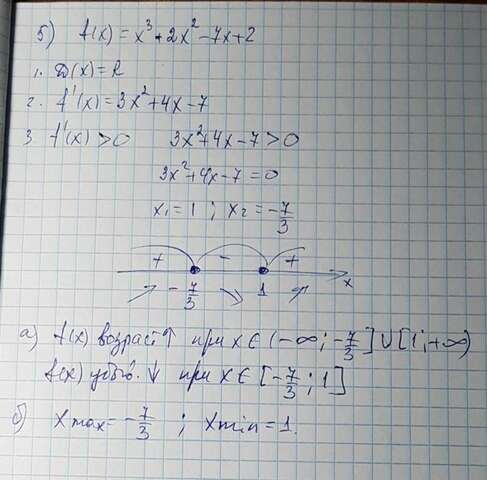 5) f(x) = x³ + 2x² - 7x + 2
1. D(x) = R
2. f'(x) = 3x² + 4x - 7
3. f'(x) > 0 3x² + 4x - 7 > 0
3x² + 4x - 7 = 0
x₁ = 1 ; x₂ = -7/3
+ - +
-7/3 1 x
а) f(x) возраст ↑ при x ∈ (-∞; -7/3] ∪ [1; +∞)
f(x) убыв. ↓ при x ∈ [-7/3; 1]
б) xmax = -7/3 ; xmin = 1.